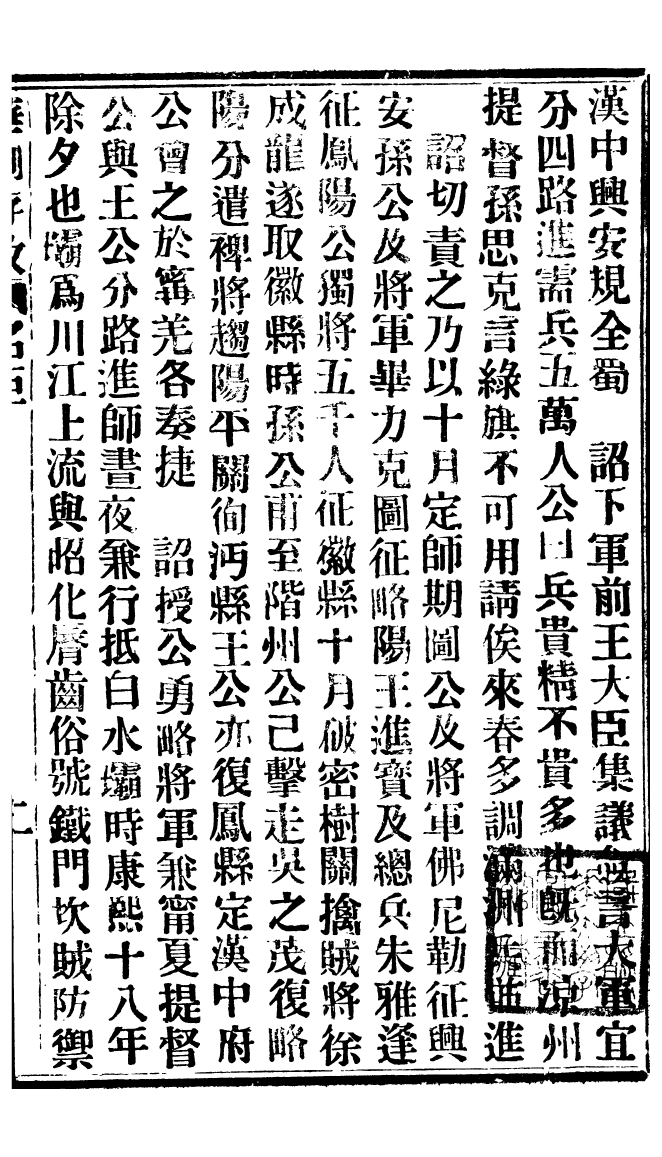 漢中興安規全蜀　詔下軍前王大臣集議僉言大軍宜
分四路進需兵五萬人公曰兵貴精不貴多也旣而涼州
提督孫思克言綠旗不可用請俟來春多調滿洲兵並進
　詔切責之乃以十月定師期圖公及將軍佛尼勒征興
安孫公及將軍畢力克圖征略陽王進寶及總兵朱雅逢
征鳳陽公獨將五千人征徽縣十月破密樹關擒賊將徐
成龍遂取徽縣時孫公甫至階州公已擊走吳之茂復略
陽分遣裨將趨陽平關徇沔縣王公亦復鳳縣定漢中府
公會之於甯羌各奏捷　詔授公勇略將軍兼甯夏提督
公與王公分路進師晝夜兼行抵白水壩時康熙十八年
除夕也壩爲川江上流與昭化脣齒俗號鐵門坎賊防禦